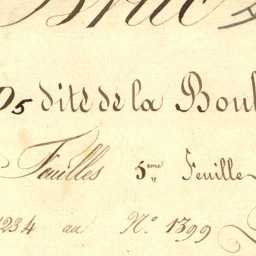 D5 dite de la Boul
Feuilles 5eme Feuille
1234 au N.o 1399